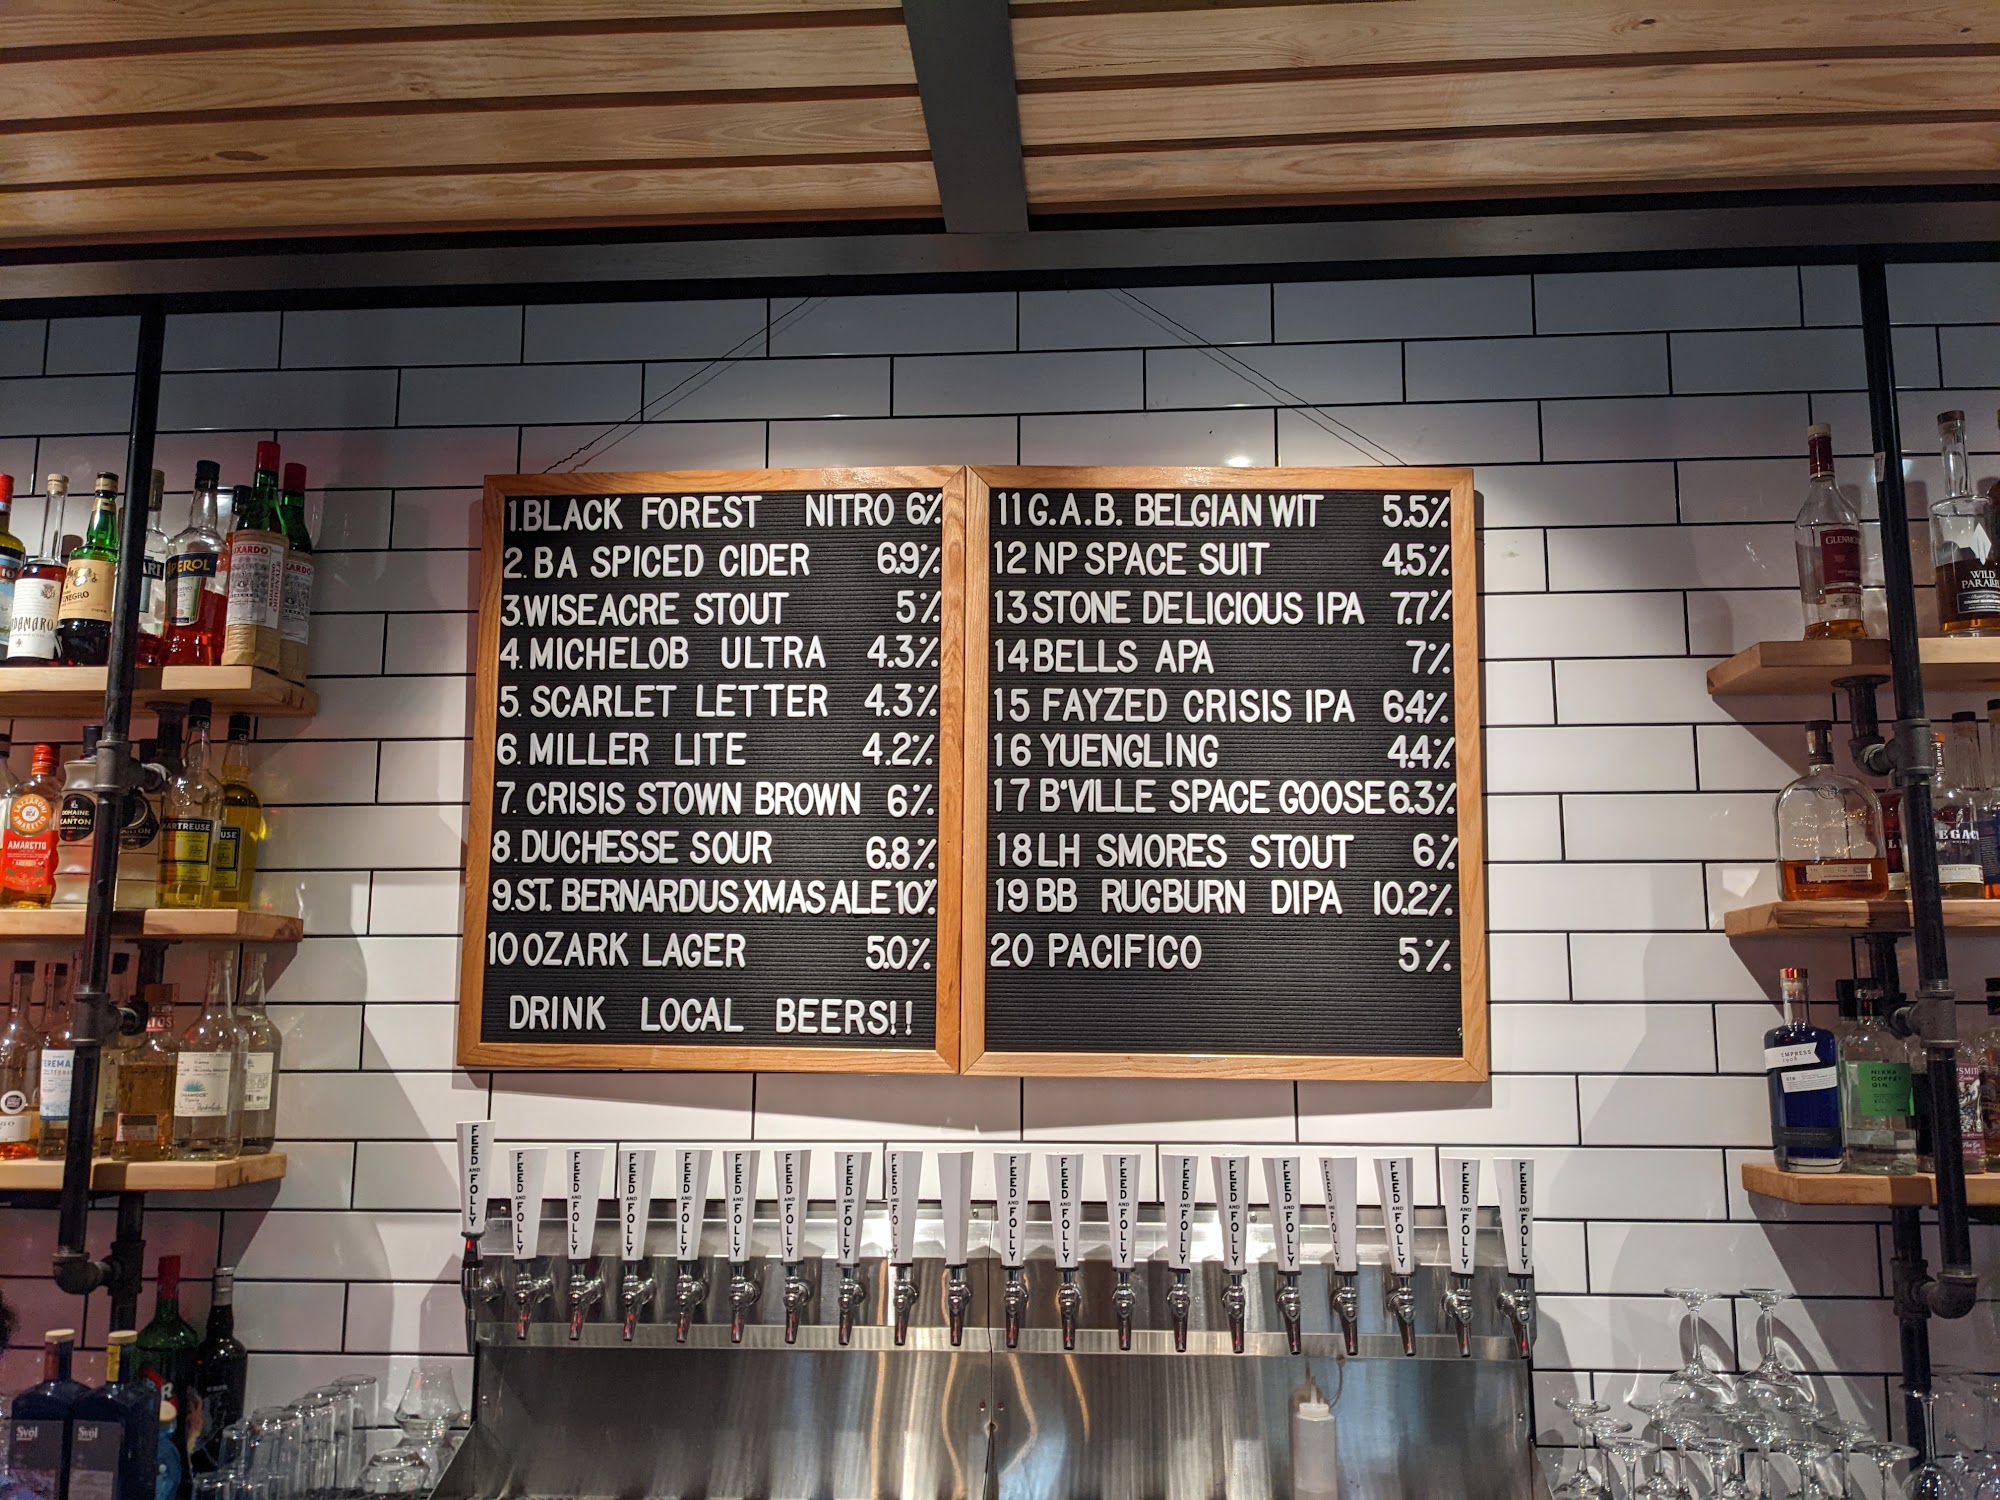 1.BLACK FOREST NITRO 6%
2. BA SPICED CIDER 6.9%
3.WISEACRE STOUT 5%
4. MICHELOB ULTRA 4.3%
5. SCARLET LETTER 4.3%
6. MILLER LITE 4.2%
7. CRISIS STOWN BROWN 6%
8.DUCHESSE SOUR 6.8%
9.ST. BERNARDUS XMAS ALE 10%
10 OZARK LAGER 5.0%
DRINK LOCAL BEERS!!
11 G.A.B. BELGIAN WIT 5.5%
12 NP SPACE SUIT 4.5%
13 STONE DELICIOUS IPA 7.7%
14 BELLS APA 7%
15 FAYZED CRISIS IPA 6.4%
16 YUENGLING 4.4%
17 B'VILLE SPACE GOOSE 6.3%
18 LH SMORES STOUT 6%
19 BB RUGBURN DIPA 10.2%
20 PACIFICO 5%
APEROL
AMARETTO
DOMAINE
CANTON
WILD
EMPRESS
1908
GIN
NIKKA
COFFEY
GIN
Svöl
Svöl
FEED AND FOLLY
FEED AND FOLLY
FEED AND FOLLY
FEED AND FOLLY
FEED AND FOLLY
FEED AND FOLLY
FEED AND FOLLY
FEED AND FOLLY
FEED AND FOLLY
FEED AND FOLLY
FEED AND FOLLY
FEED AND FOLLY
FEED AND FOLLY
FEED AND FOLLY
FEED AND FOLLY
FEED AND FOLLY
FEED AND FOLLY
FEED AND FOLLY
FEED AND FOLLY